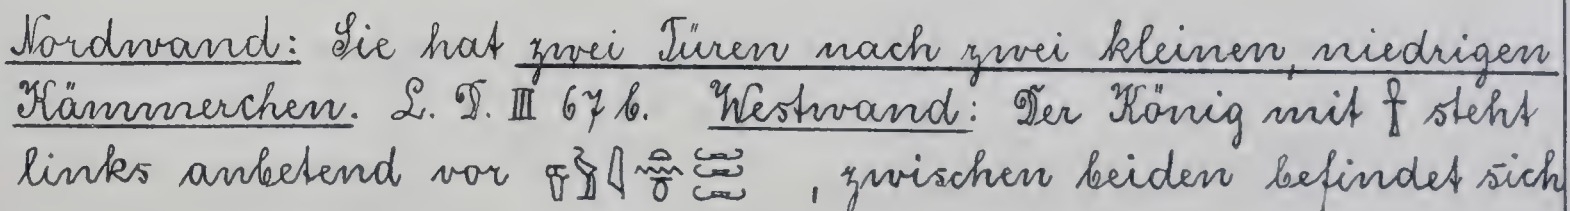 Nordwand: Sie hat zwei Türen nach zwei kleinen, niedrigen
Kämmerchen. L. D. III 67 b. Westwand: Der König mit 𓋹 steht
links anbetend vor , zwischen beiden befindet sich